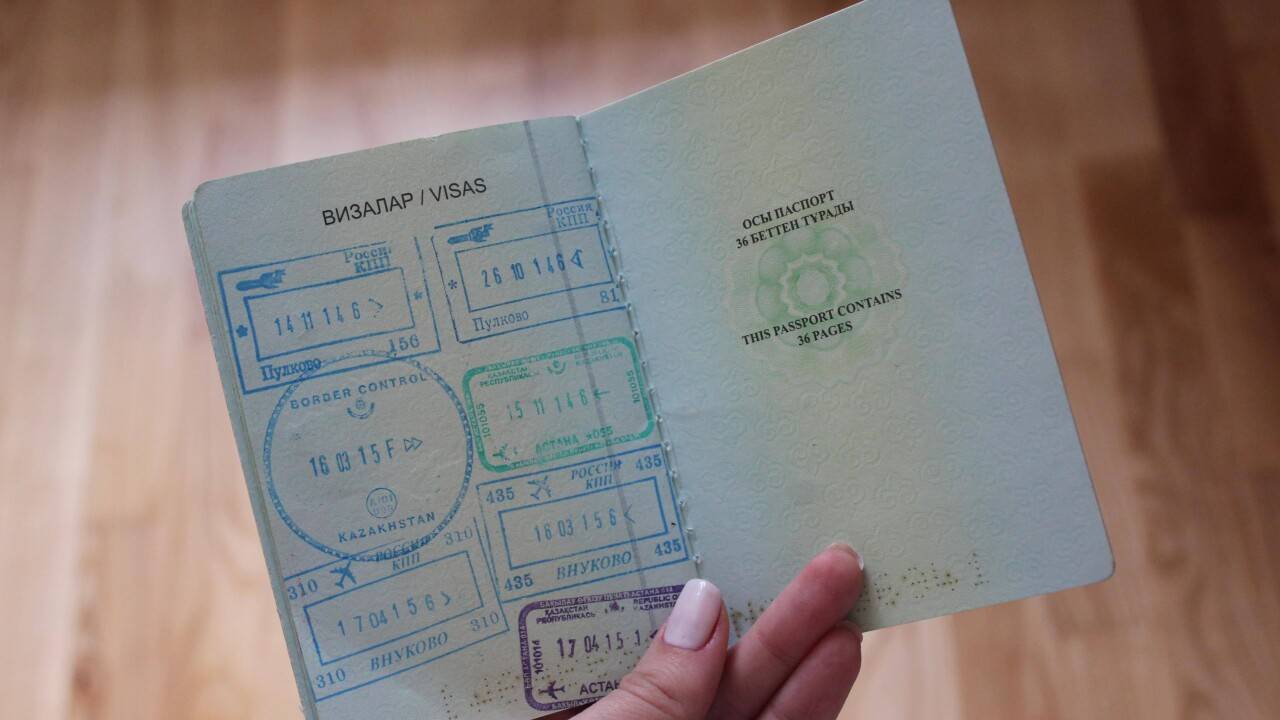 ВИЗАЛАР / VISAS
Россия
КПП
14 11 14 6
Пулково
156
Россия
КПП
26 10 14 6
Пулково
81
BORDER CONTROL
16 03 15 F
KAZAKHSTAN
ҚАЗАҚСТАН
РЕСПУБЛИКАСЫ
101055
15 11 14 6
101055
АСТАНА *055
435
РОССИЯ
КПП
435
16 03 15 6
435
ВНУКОВО
435
310
РОССИЯ
КПП
310
17 04 15 6
310
ВНУКОВО
310
ҚАЗАҚСТАН
РЕСПУБЛИКАСЫ
REPUBLIC OF
KAZAKHSTAN
101014
17 04 15
АСТА
ОСЫ ПАСПОРТ
36 БЕТТЕН ТҰРАДЫ
THIS PASSPORT CONTAINS
36 PAGES